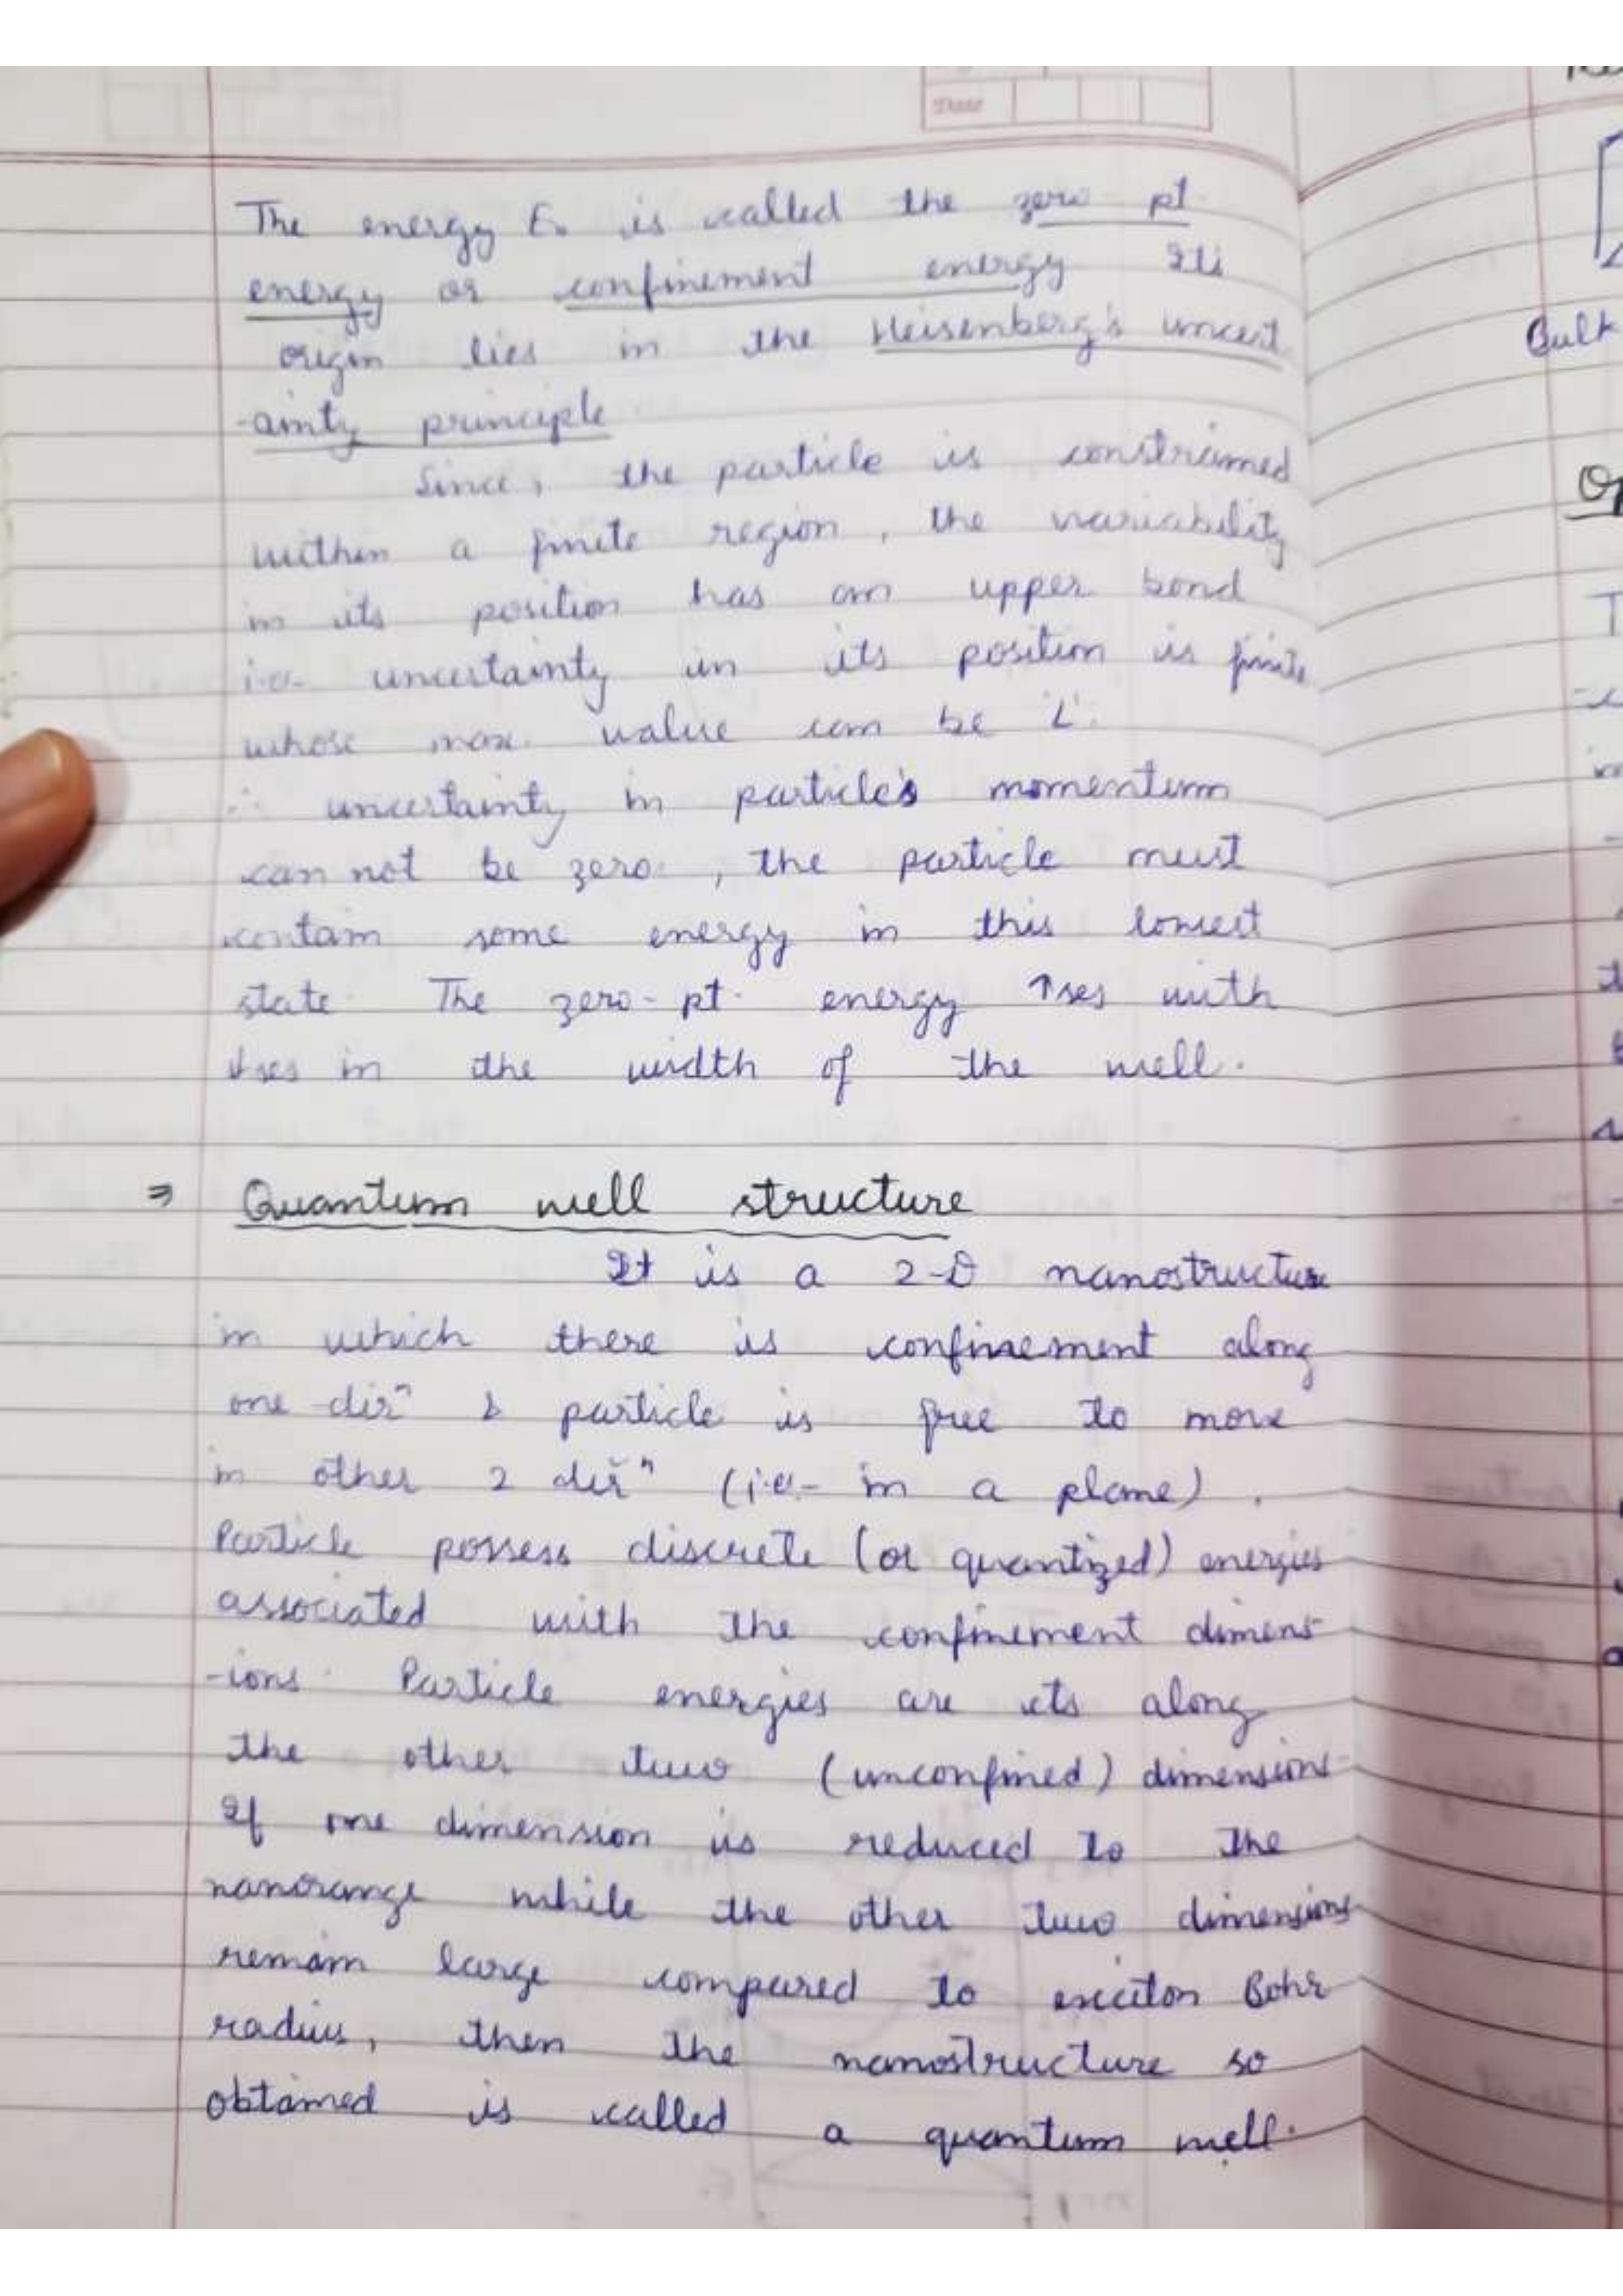 Date
The energy E₀ is called the zero pt.
energy or confinement energy Its
origin lies in the Heisenberg's uncert
-ainty principle
Since, the particle is constrained
within a finite region, the variability
in its position has an upper bond
i.e. uncertainty in its position is finite
whose max. value can be 'L'.
∴ uncertainty in particle's momentum
can not be zero, the particle must
contain some energy in this lowest
state. The zero-pt. energy ↑ses with
↓ses in the width of the well.
⇒ Quantum well structure
It is a 2-D nanostructure
in which there is confinement along
one dirⁿ & particle is free to move
in other 2 dirⁿ (i.e.- in a plane).
Particle possess discrete (or quantized) energies
associated with the confinement dimens-
-ions. Particle energies are cts along
the other two (unconfined) dimensions.
If one dimension is reduced to the
nanorange while the other two dimensions
remain large compared to exciton Bohr
radius, then the nanostructure so
obtained is called a quantum well.
Bulk